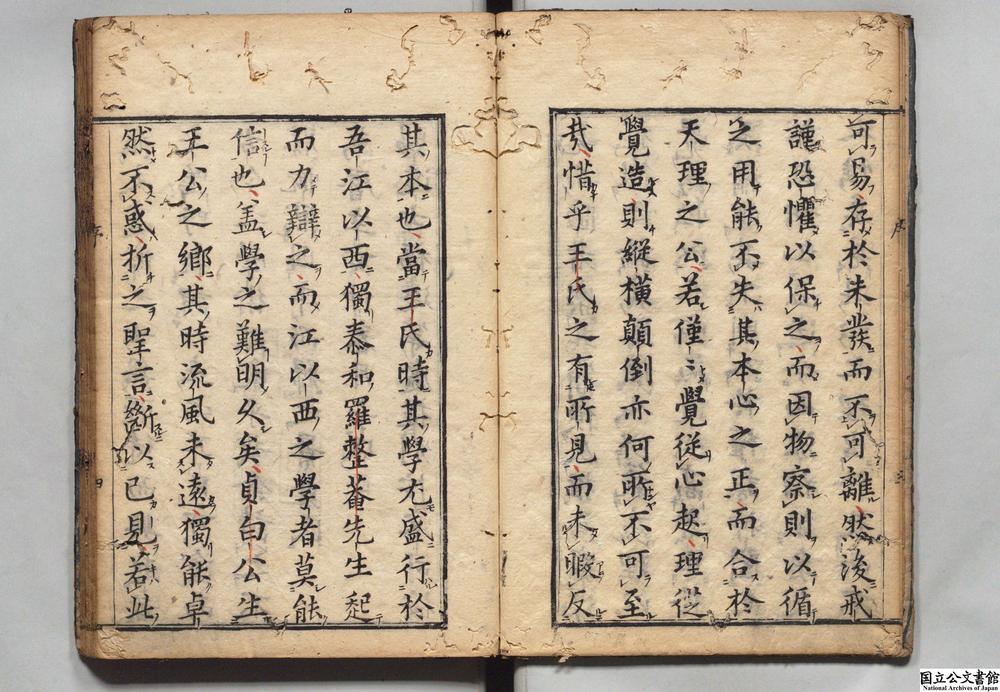 可易存於未發而不可離然後戒
謹恐懼以保之而因物察則以循
之用能不失其本心之正而合於
天理之公若僅〻覺從心起理從
覺造則縱橫顛倒亦何所不可至
㢤惜乎王氏之有所見而未暇反
其本也當王氏時其學尤盛行於
吾江以西獨泰和羅整菴先生起
而力辯之而江以西之學者莫能
信也盖學之難明久矣貞白公生
王公之鄉其時流風未遠獨能卓
然不惑折之聖言斷以已見若此
序
三
序
四
国立公文書館
National Archives of Japan